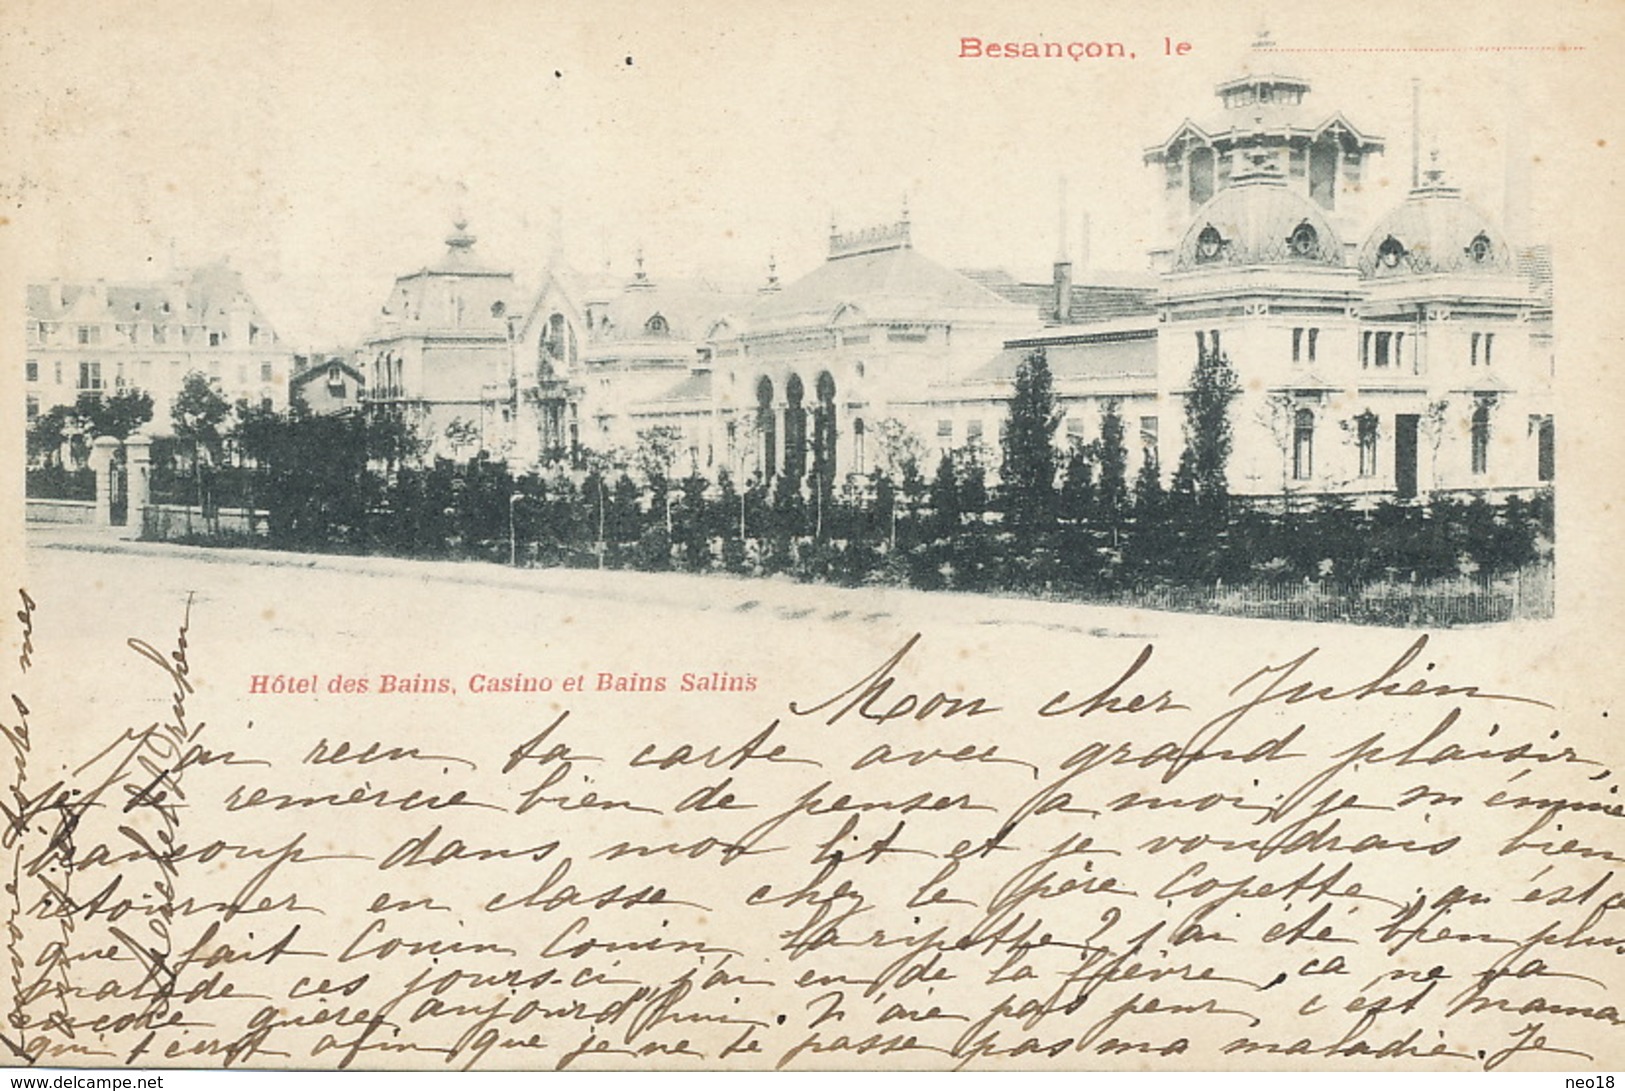 Besançon, le
Hôtel des Bains, Casino et Bains Salins
Mon cher Julien
J'ai recu ta carte avec grand plaisir,
je te remercie bien de penser a moi, je m'ennuie
beaucoup dans mon lit et je voudrais bien
retourner en classe chez le père Copette, qu'est ce
que fait Conin Conin, la ripette? j'ai été bien plus
malade ces jours-ci, j'ai eu de la fièvre, ca ne va
encore guère aujourd'hui. N'aie pas peur, c'est Maman
qui t'ecrit afin que je ne te passe pas ma maladie. Je
t'envoie toutes mes
www.delcampe.net
neo18